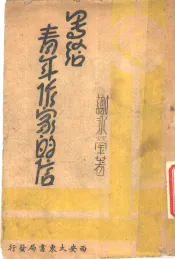 写给
青年作家的信
謝冰瑩著
西安大東書局發行